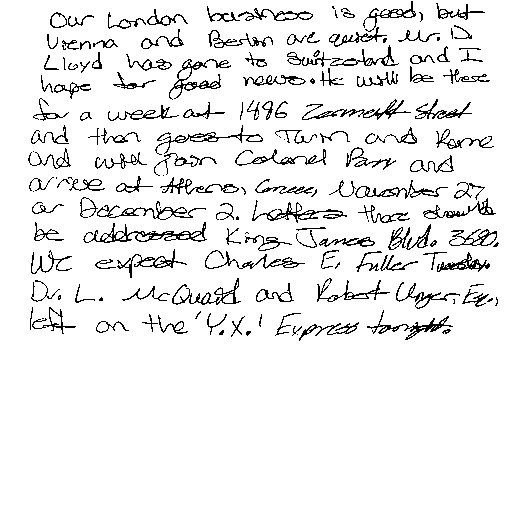 Our London business is good, but
Vienna and Berlin are quiet. Mr. D.
Lloyd has gone to Switzerland and I
hope for good news. He will be there
for a week at 1496 Zermott Street
and then goes to Turin and Rome
and will join Colonel Parry and
arrive at Athens, Greece, November 27
or December 2. Letters there should
be addressed King James Blvd. 3680.
We expect Charles E. Fuller Tuesday.
Dr. L. McQuaid and Robert Unger, Esq.,
left on the 'Y.X.' Express tonight.